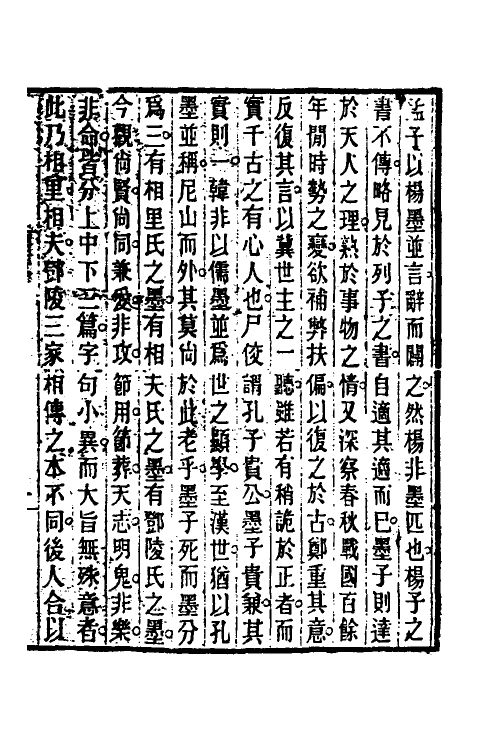 孟子以楊墨並言辭而闢之然楊非墨匹也楊子之
書不傳略見於列子之書自適其適而已墨子則達
於天人之理熟於事物之情又深察春秋戰國百餘
年閒時勢之變欲補弊扶偏以復之於古鄭重其意
反復其言以冀世主之一聽雖若有稍詭於正者而
實千古之有心人也尸佼謂孔子貴公墨子貴兼其
實則一韓非以儒墨並爲世之顯學至漢世猶以孔
墨並稱尼山而外其莫尚於此老乎墨子死而墨分
爲三有相里氏之墨有相夫氏之墨有鄧陵氏之墨
今觀尚賢尚同兼愛非攻節用節葬天志明鬼非樂
非命皆分上中下三篇字句小異而大旨無殊意者
此乃相里相夫鄧陵三家相傳之本不同後人合以